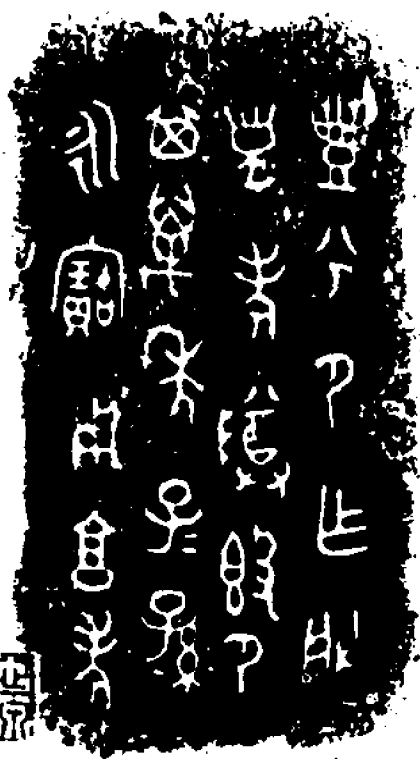 豐兮尸乍朕
皇考尊簋尸
其萬年子=孫
永寶用享考